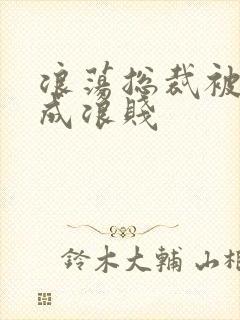 浪蕩总裁被
成浪賤
鈴木大輔 山相